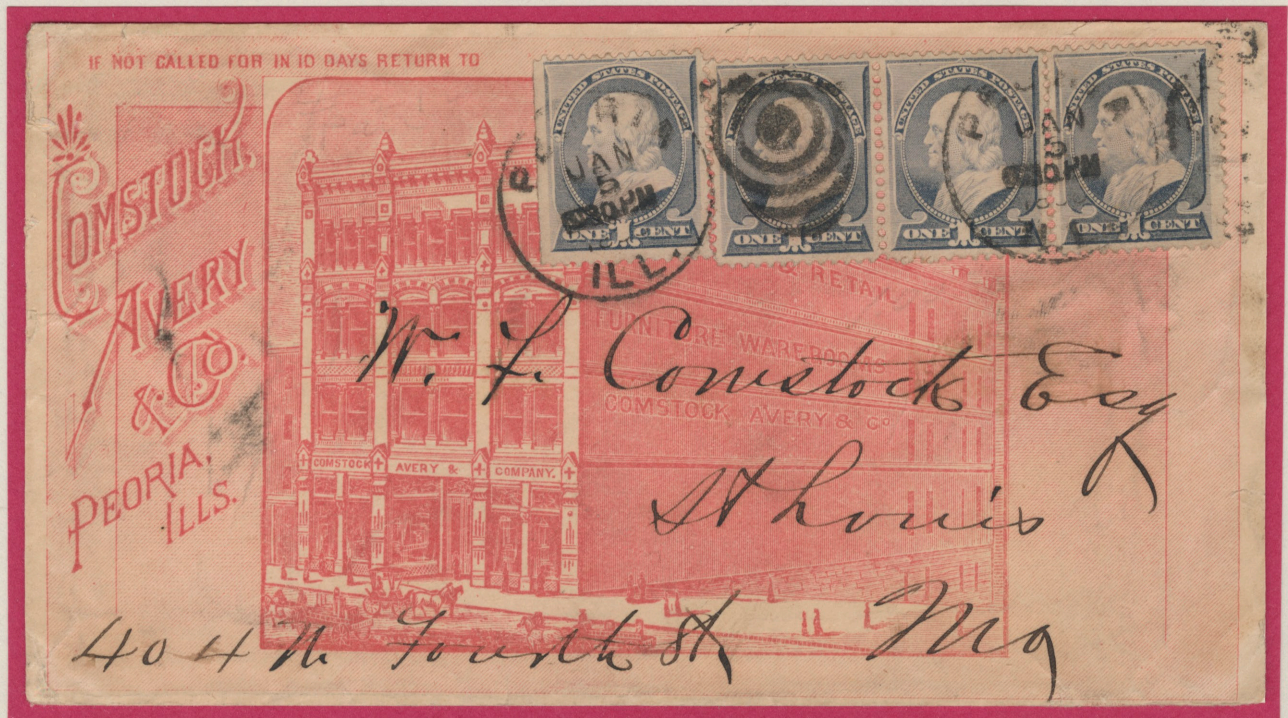 IF NOT CALLED FOR IN 10 DAYS RETURN TO
COMSTOCK,
AVERY
& CO.
PEORIA,
ILLS.
UNITED STATES POSTAGE
ONE 1 CENT
ONE CENT
UNITED STATES POSTAGE
ONE 1 CENT
UNITED STATES POSTAGE
ONE 1 CENT
PEORIA
JAN
5
PM
ILL.
JAN
5
PM
& RETAIL
FURNITURE WAREROOMS
COMSTOCK AVERY & Co
COMSTOCK AVERY & COMPANY.
W. F. Comstock Esq
St Louis
Mo
404 N. Fourth St